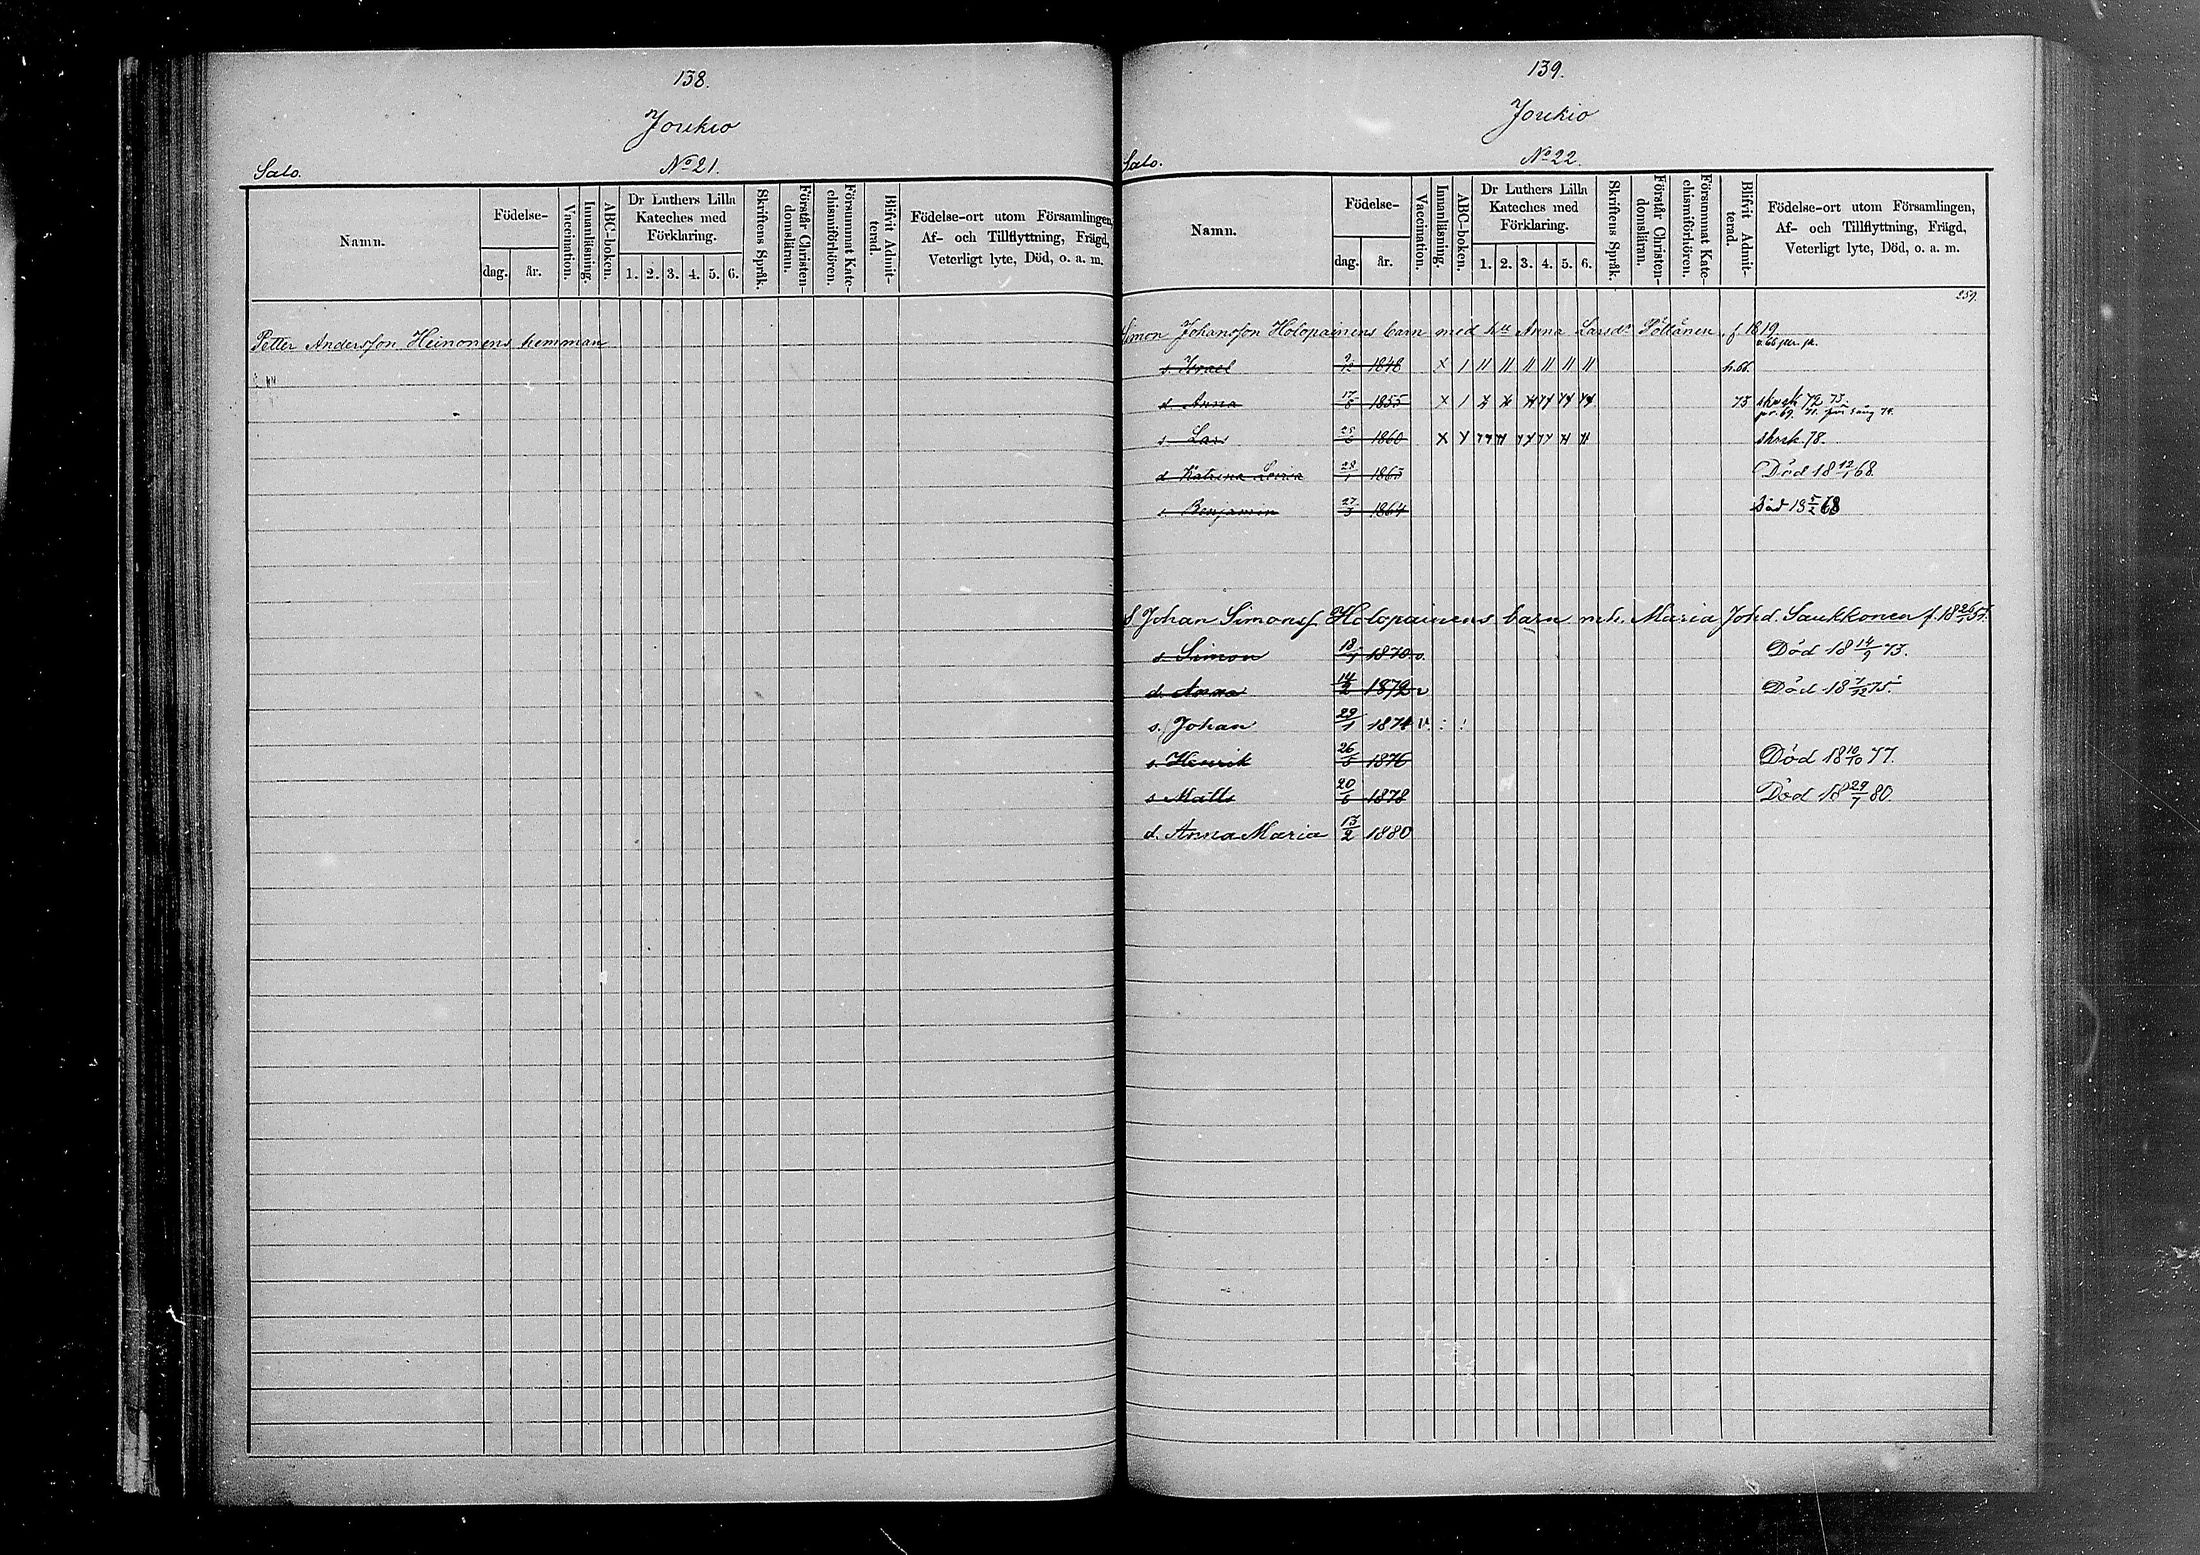 138.
Joukio
Salo. No 21.
Namn.
Födelse-
dag. år.
Vaccination.
Innanläsning.
ABC-boken.
Dr Luthers Lilla Kateches med Förklaring.
1. 2. 3. 4. 5. 6.
Skriftens Språk.
Förstår Christendomsläran.
Försummat Katechismiförhören.
Blifvit Admitterad.
Födelse-ort utom Församlingen,
Af- och Tillflyttning, Frägd,
Veterligt lyte, Död, o. a. m.
Petter Andersson Heinonens hemman
139.
Joukio
Salo. No 22.
Namn.
Födelse-
dag. år.
Vaccination.
Innanläsning.
ABC-boken.
Dr Luthers Lilla Kateches med Förklaring.
1. 2. 3. 4. 5. 6.
Skriftens Språk.
Förstår Christendomsläran.
Försummat Katechismiförhören.
Blifvit Admitterad.
Födelse-ort utom Församlingen,
Af- och Tillflyttning, Frägd,
Veterligt lyte, Död, o. a. m.
259.
Simon Johansson Holopainens barn med hu Anna Larsdr Pöllänen f. 1819
s. Israel 1848
d. Anna 17/8 1855 75 72 73.
s. Lars 25/6 1860 78.
d. Katrina Lovisa 28/1 1863 Död 18 12/1 68.
s. Benjamin 27/3 1864 Död 18 5/2 68
S. Johan Simonss. Holopainens barn m.h. Maria Johd. Saukkonen
s. Simon 18/1 1870 Död 18 14/9 73.
d. Anna 14/2 1872 v Död 18 7/12 75.
s. Johan 29/1 1874 v.
s. Henrik 26/5 1876 Död 18 10/10 77.
s. Matts 20/6 1878 Död 18 29/7 80.
d. Anna Maria 13/2 1880